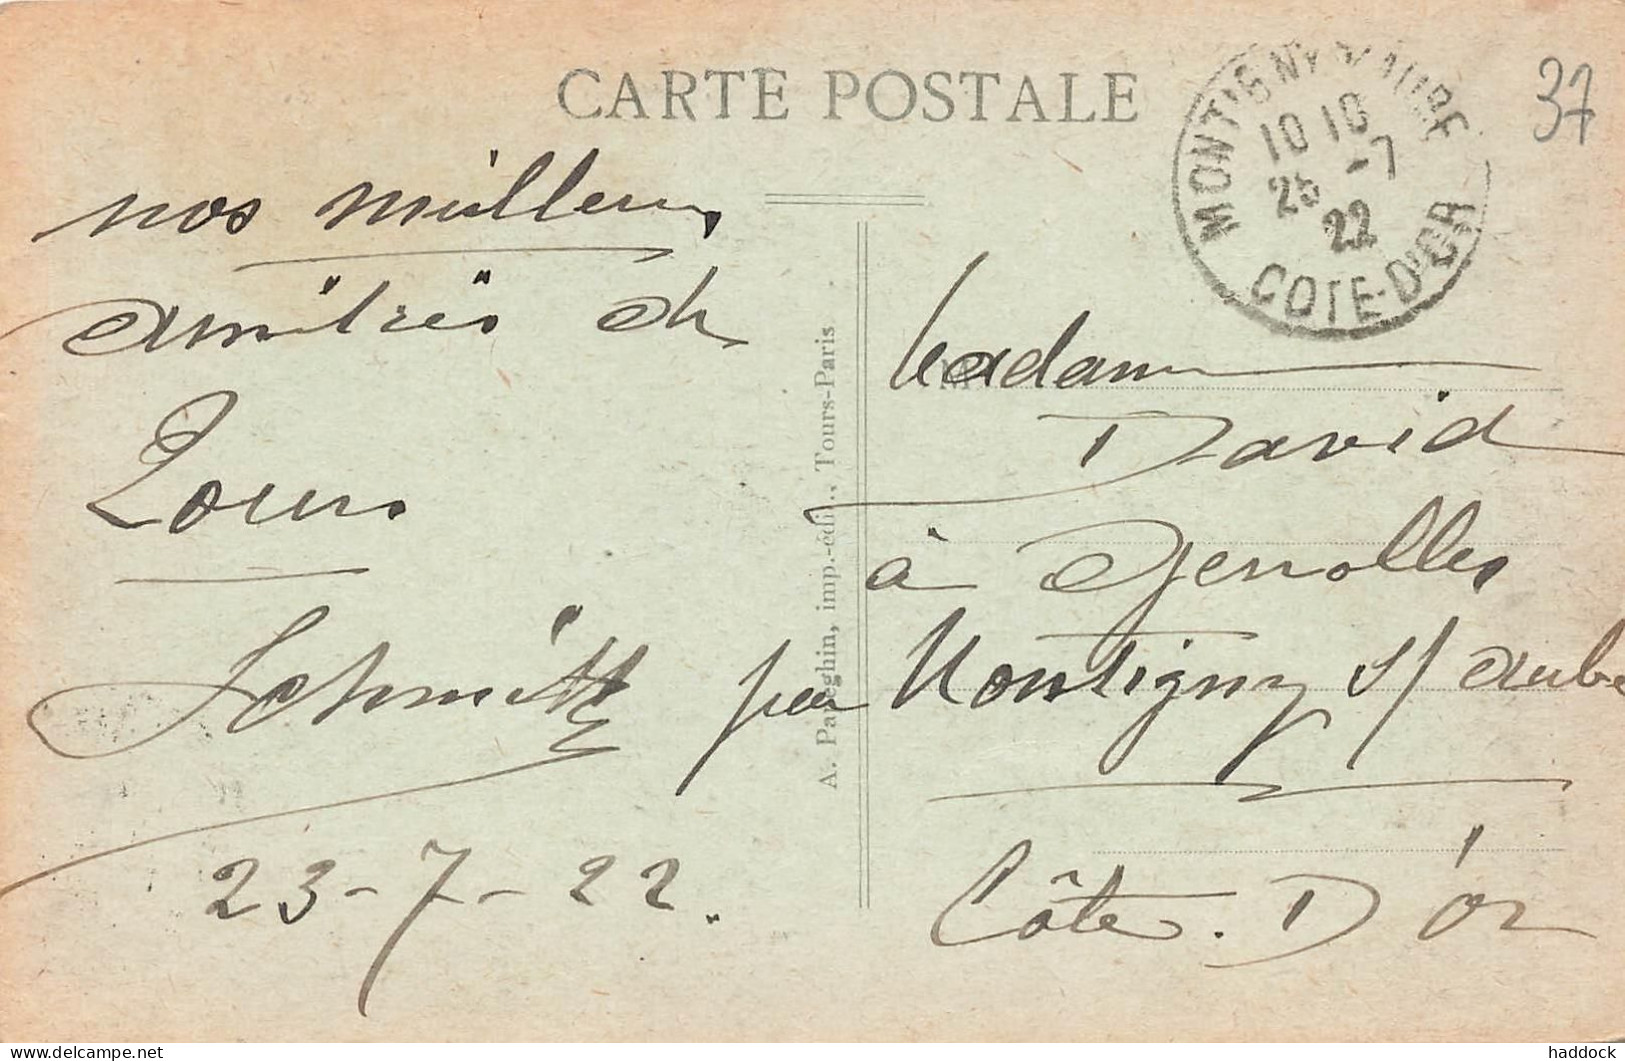 CARTE POSTALE
37
MONTIGNY S/ AUBE
10 10
25 -7
22
COTE-D'OR
nos meilleurs
amitiés de
Tours
Schmitt
23-7-22.
A. Papeghin, imp.-édit., Tours-Paris
Madame
David
à Gerrolles
par Montigny s/ aube
Côte. D'Or
delcampe.net
haddock